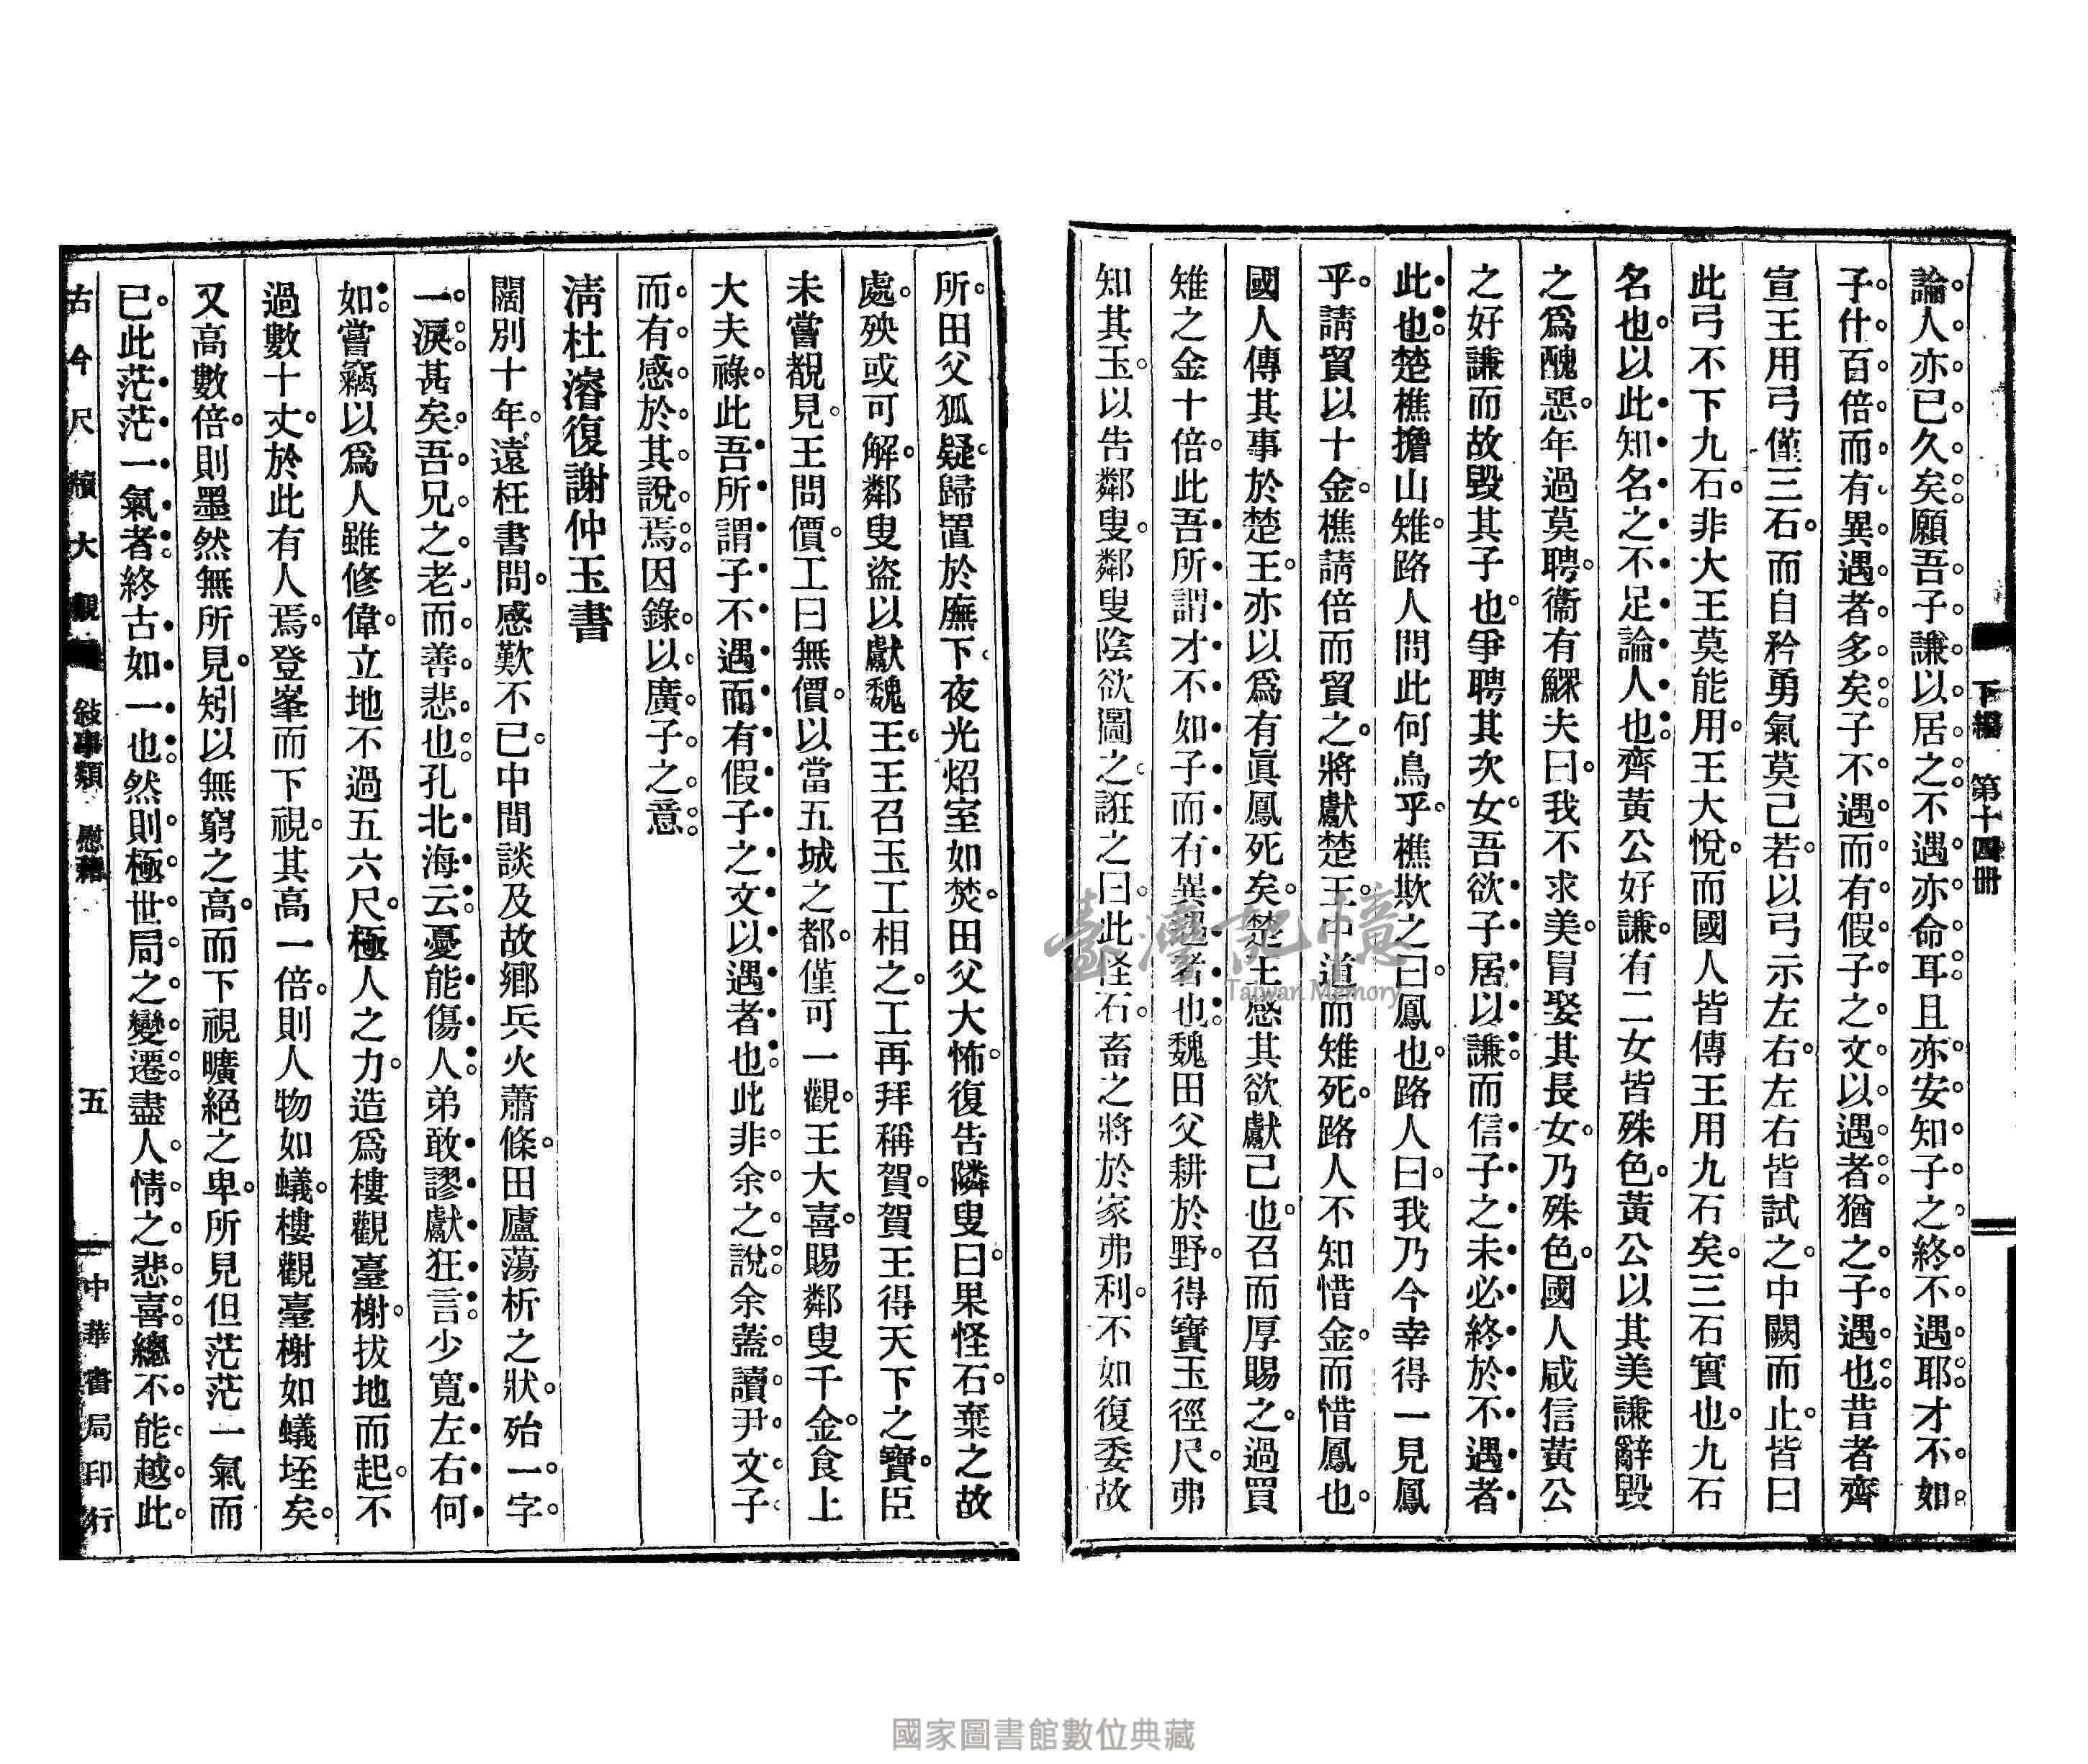 下編 第十四册
論人亦已久矣願吾子謙以居之不遇亦命耳且亦安知子之終不遇耶才不如
子什百倍而有異遇者多矣子不遇而有假子之文以遇者猶之子遇也昔者齊
宣王用弓僅三石而自矜勇氣莫己若以弓示左右左右皆試之中闕而止皆曰
此弓不下九石非大王莫能用王大悅而國人皆傳王用九石矣三石實也九石
名也以此知名之不足論人也齊黃公好謙有二女皆殊色黃公以其美謙辭毀
之爲醜惡年過莫聘衞有鰥夫曰我不求美冒娶其長女乃殊色國人咸信黃公
之好謙而故毀其子也爭聘其次女吾欲子居以謙而信子之未必終於不遇者
此也楚樵擔山雉路人問此何鳥乎樵欺之曰鳳也路人曰我乃今幸得一見鳳
乎請貿以十金樵請倍而貿之將獻楚王中道而雉死路人不知惜金而惜鳳也
國人傳其事於楚王亦以爲有眞鳳死矣楚王感其欲獻己也召而厚賜之過買
雉之金十倍此吾所謂才不如子而有異遇者也魏田父耕於野得寶玉徑尺弗
知其玉以告鄰叟鄰叟陰欲圖之誑之曰此怪石畜之將於家弗利不如復委故
所田父狐疑歸置於廡下夜光炤室如焚田父大怖復告隣叟曰果怪石棄之故
處殃或可解鄰叟盜以獻魏王王召玉工相之工再拜稱賀賀王得天下之寶臣
未嘗覩見王問價工曰無價以當五城之都僅可一觀王大喜賜鄰叟千金食上
大夫祿此吾所謂子不遇而有假子之文以遇者也此非余之說余蓋讀尹文子
而有感於其說焉因錄以廣子之意
清杜濬復謝仲玉書
闊別十年遠枉書問感歎不已中間談及故鄉兵火蕭條田廬蕩析之狀殆一字
一淚甚矣吾兄之老而善悲也孔北海云憂能傷人弟敢謬獻狂言少寬左右何
如嘗竊以爲人雖修偉立地不過五六尺極人之力造爲樓觀臺榭拔地而起不
過數十丈於此有人焉登峯而下視其高一倍則人物如蟻樓觀臺榭如蟻垤矣
又高數倍則墨然無所見矧以無窮之高而下視曠絕之卑所見但茫茫一氣而
已此茫茫一氣者終古如一也然則極世局之變遷盡人情之悲喜總不能越此
古今尺牘大觀 敍事類 慰藉 五 中華書局印行
臺灣記憶
Taiwan Memory
國家圖書館數位典藏